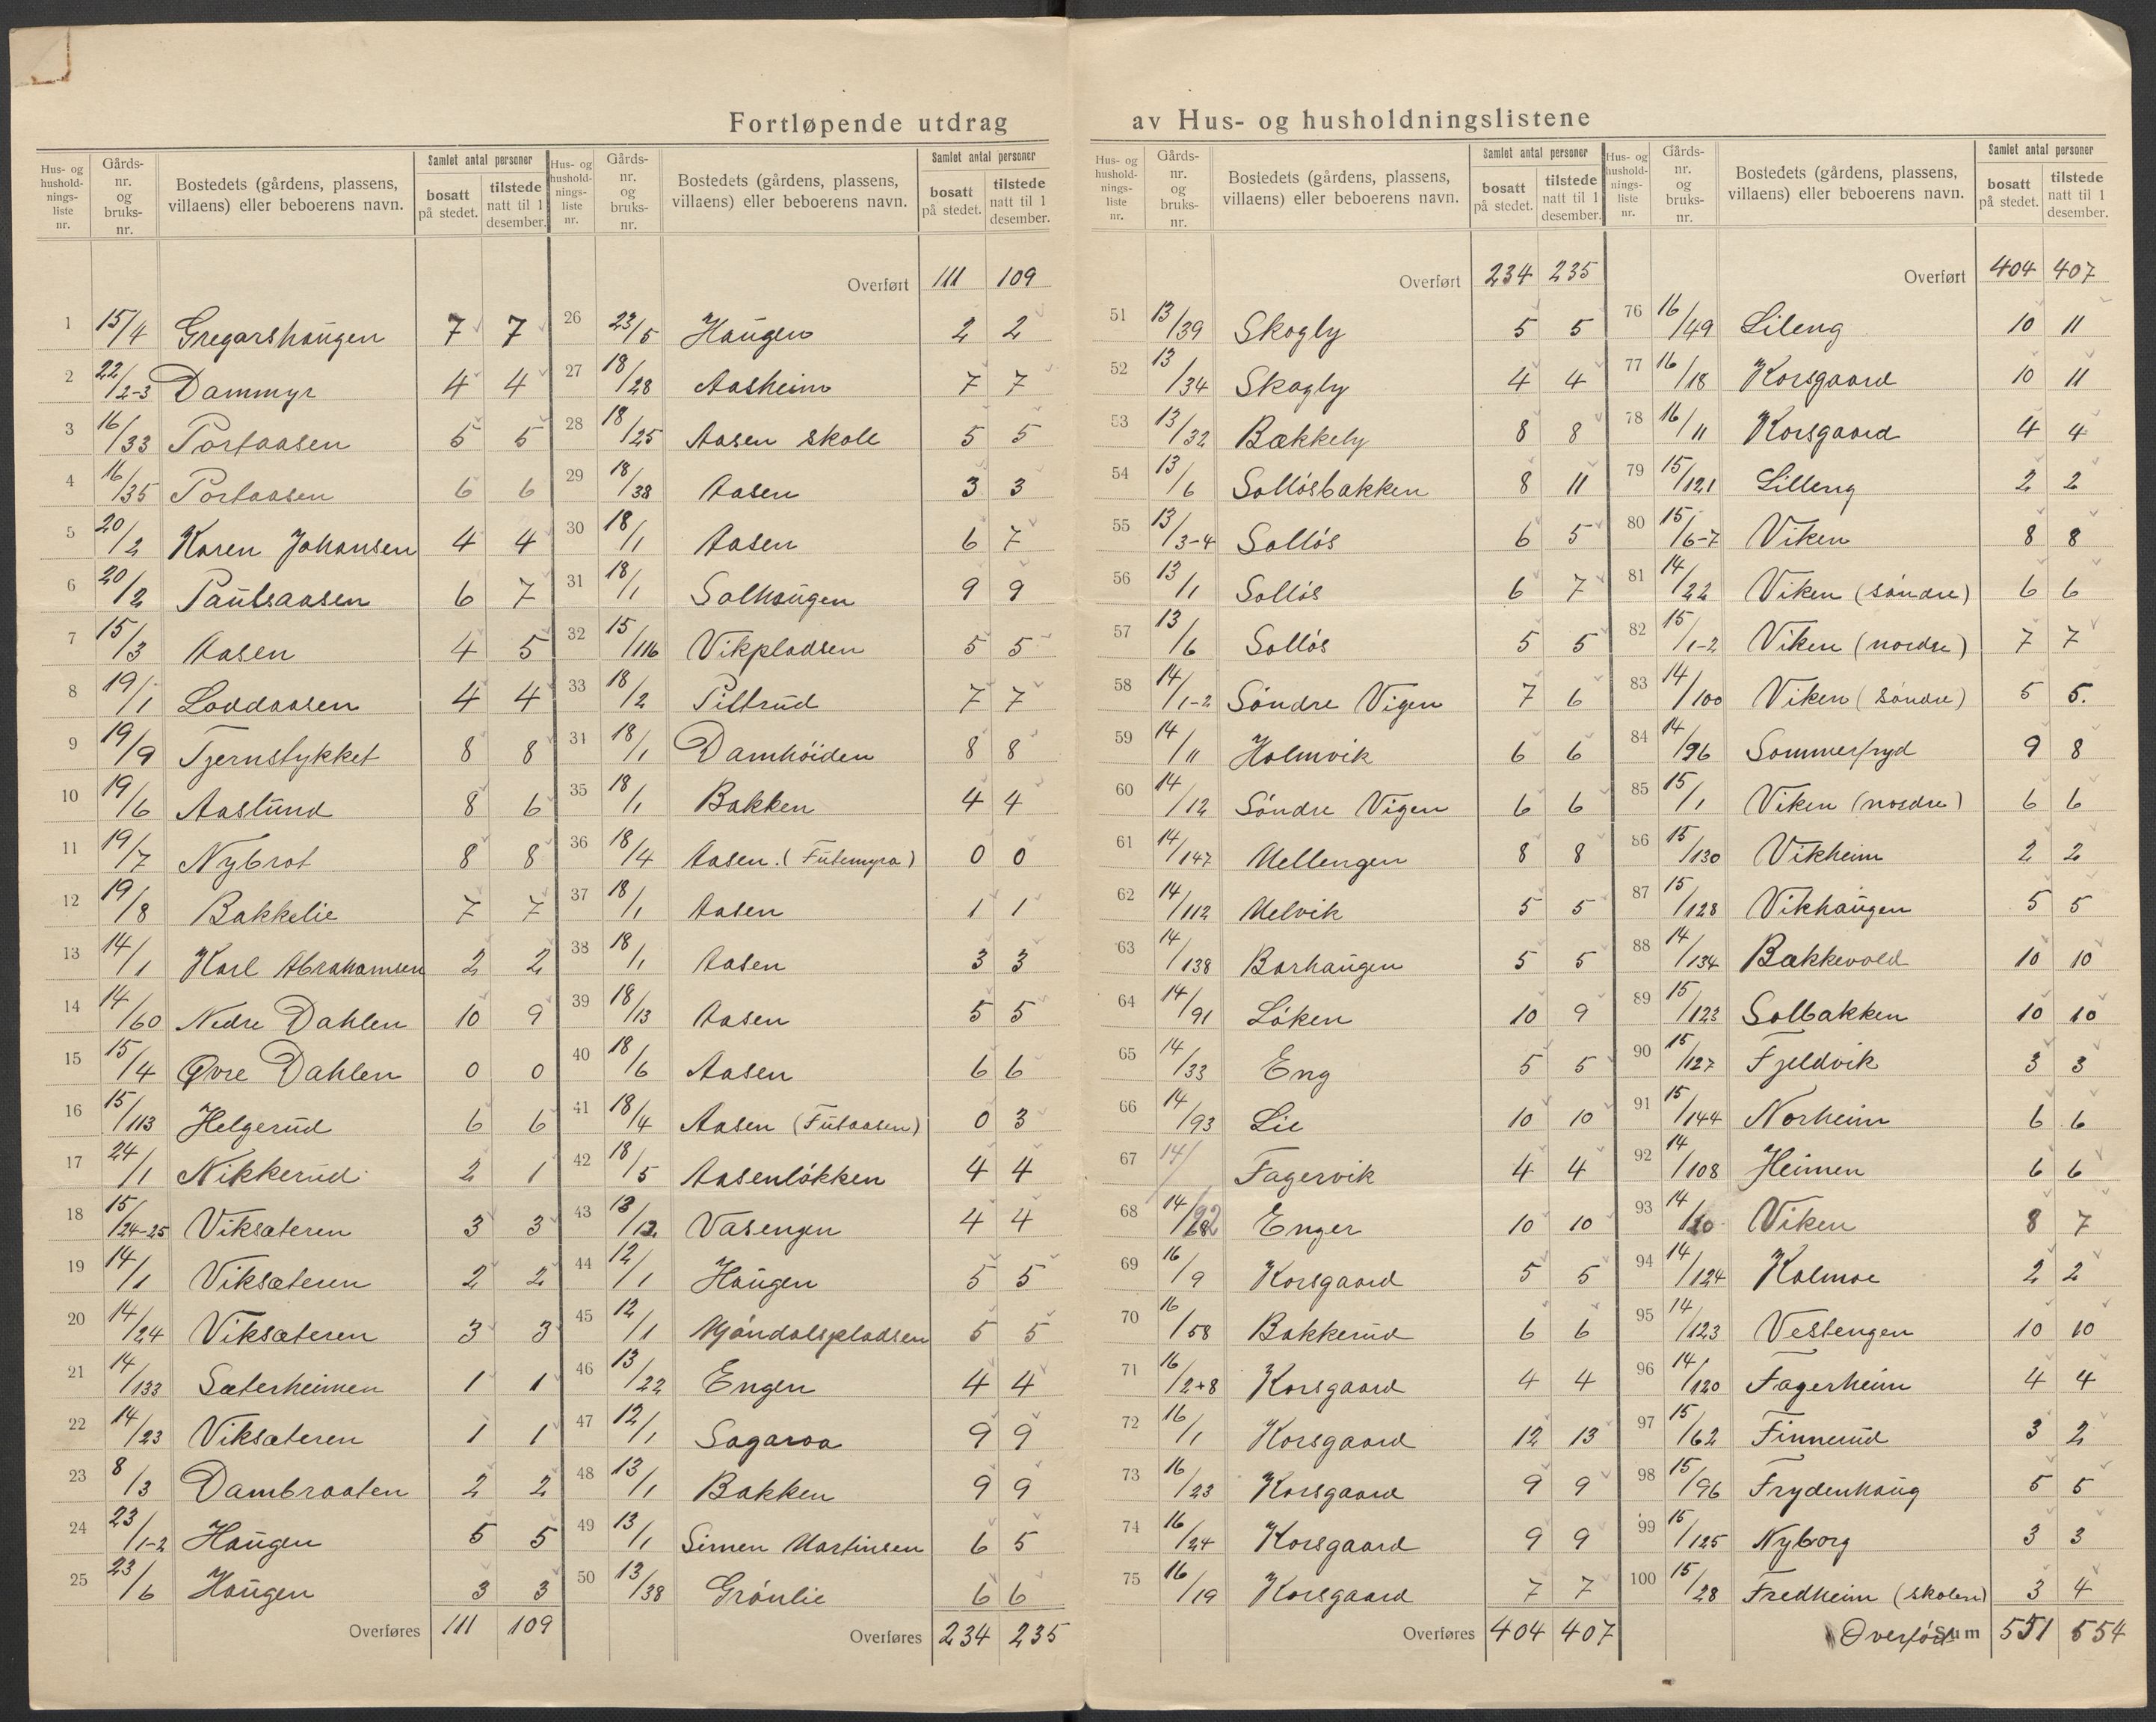 Fortløpende utdrag av Hus- og husholdningslistene
Hus- og hushold-nings-liste nr. | Gårds-nr. og bruks-nr. | Bostedets (gårdens, plassens, villaens) eller beboerens navn. | Samlet antal personer | bosatt på stedet. | tilstede natt til 1 desember.
1 15/4 Gregarshaugen 7 7
2 22/2-3 Dammyr 4 4
3 16/33 Portaasen 5 5
4 16/35 Portaasen 6 6
5 20/2 Karen Johansen 4 4
6 20/2 Paulsaasen 6 7
7 15/3 Aasen 4 5
8 19/1 Loddaasen 4 4
9 19/9 Tjernstykket 8 8
10 19/6 Aaslund 8 6
11 19/7 Nybrot 8 8
12 19/8 Bakkelie 7 7
13 14/1 Karl Abrahamsen 2 2
14 14/60 Nedre Dahlen 10 9
15 15/4 Øvre Dahlen 0 0
16 15/113 Helgerud 6 6
17 24/1 Nikkerud 2 1
18 15/24-25 Viksæteren 3 3
19 14/1 Viksæteren 2 2
20 14/24 Viksæteren 3 3
21 14/133 Sæterheimen 1 1
22 14/23 Viksæteren 1 1
23 8/3 Dambraaten 2 2
24 23/1-2 Haugen 5 5
25 23/6 Haugen 3 3
Overføres 111 109
Hus- og hushold-nings-liste nr. | Gårds-nr. og bruks-nr. | Bostedets (gårdens, plassens, villaens) eller beboerens navn. | Samlet antal personer | bosatt på stedet. | tilstede natt til 1 desember.
Overført 111 109
26 23/5 Haugen 2 2
27 18/28 Aasheim 7 7
28 18/25 Aasen skole 5 5
29 18/38 Aasen 3 3
30 18/1 Aasen 6 7
31 18/1 Solhaugen 9 9
32 15/116 Vikpladsen 5 5
33 18/2 Piltrud 7 7
34 18/1 Damhöiden 8 8
35 18/1 Bakken 4 4
36 18/4 Aasen. (Futemyra) 0 0
37 18/1 Aasen 1 1
38 18/1 Aasen 3 3
39 18/13 Aasen 5 5
40 18/6 Aasen 6 6
41 18/4 Aasen (Futaasen) 0 3
42 18/5 Aasenlökken 4 4
43 13/12 Vasengen 4 4
44 12/1 Haugen 5 5
45 12/1 Mjöndalspladsen 5 5
46 13/22 Engen 4 4
47 12/1 Sagaroa 9 9
48 13/1 Bakken 9 9
49 13/1 Simen Martinsen 6 5
50 13/38 Grönlie 6 6
Overføres 234 235
Hus- og hushold-nings-liste nr. | Gårds-nr. og bruks-nr. | Bostedets (gårdens, plassens, villaens) eller beboerens navn. | Samlet antal personer | bosatt på stedet. | tilstede natt til 1 desember.
Overført 234 235
51 13/39 Skogly 5 5
52 13/34 Skogly 4 4
53 13/32 Bækkely 8 8
54 13/6 Sollösbakken 8 11
55 13/3-4 Sollös 6 5
56 13/1 Sollös 6 7
57 13/6 Sollös 5 5
58 14/1-2 Söndre Vigen 7 6
59 14/11 Holmvik 6 6
60 14/12 Söndre Vigen 6 6
61 14/147 Mellengen 8 8
62 14/112 Melvik 5 5
63 14/138 Borhaugen 5 5
64 14/91 Löken 10 9
65 14/33 Eng 5 5
66 14/93 Lie 10 10
67 14/ Fagervik 4 4
68 14/92 Enger 10 10
69 16/9 Korsgaard 5 5
70 16/58 Bakkerud 6 6
71 16/2+8 Korsgaard 4 4
72 16/1 Korsgaard 12 13
73 16/23 Korsgaard 9 9
74 16/24 Korsgaard 9 9
75 16/19 Korsgaard 7 7
Overføres 404 407
Hus- og hushold-nings-liste nr. | Gårds-nr. og bruks-nr. | Bostedets (gårdens, plassens, villaens) eller beboerens navn. | Samlet antal personer | bosatt på stedet. | tilstede natt til 1 desember.
Overført 404 407
76 16/49 Lileng 10 11
77 16/18 Korsgaard 10 11
78 16/11 Korsgaard 4 4
79 15/121 Lilleng 2 2
80 15/6-7 Viken 8 8
81 14/22 Viken (söndre) 6 6
82 15/1-2 Viken (nordre) 7 7
83 14/100 Viken (söndre) 5 5.
84 14/96 Sommerfryd 9 8
85 15/1 Viken (nordre) 6 6
86 15/130 Vikheim 2 2
87 15/128 Vikhaugen 5 5
88 14/134 Bakkevold 10 10
89 15/123 Solbakken 10 10
90 15/127 Fjeldvik 3 3
91 15/144 Norheim 6 6
92 14/108 Heimen 6 6
93 14/20 Viken 8 7
94 14/124 Kolmoe 2 2
95 14/123 Vestengen 10 10
96 14/120 Fagerheim 4 4
97 15/62 Finnerud 3 2
98 15/96 Frydenhaug 5 5
99 15/125 Nyborg 3 3
100 15/28 Fredheim (skolen) 3 4
Overført Sum 551 554